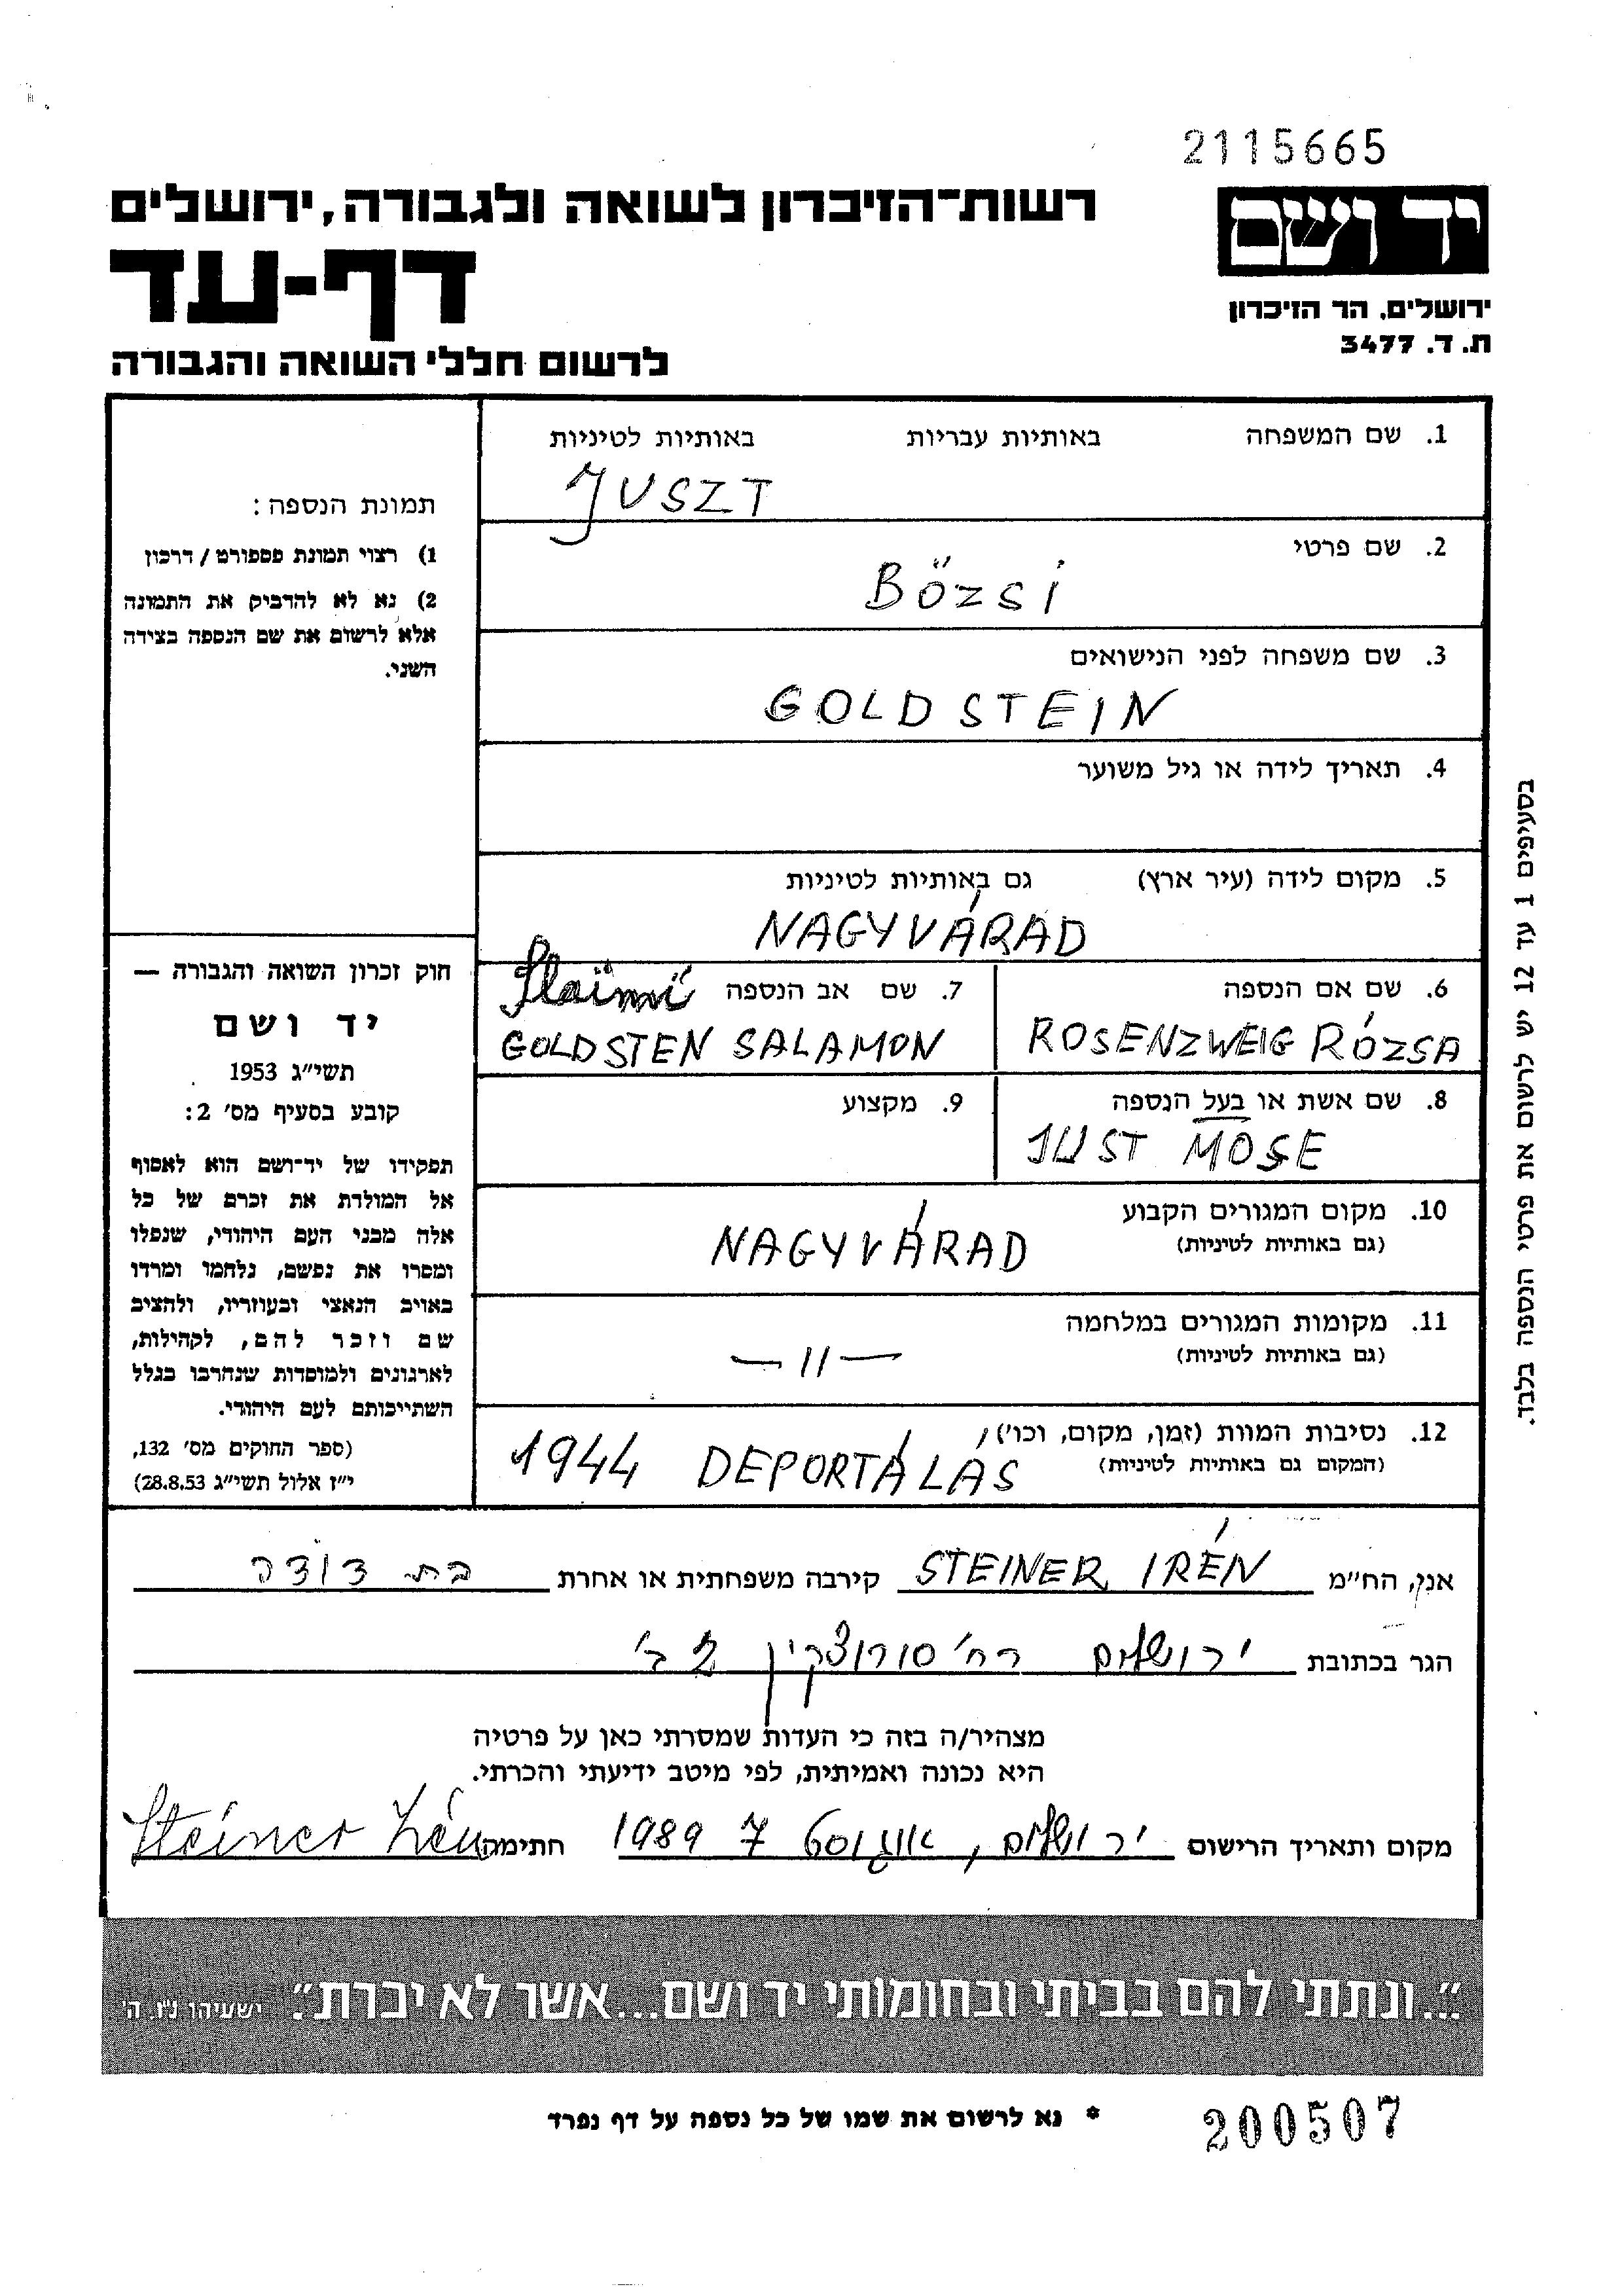 2115665
יד ושם
רשות־הזיכרון לשואה ולגבורה, ירושלים
דף-עד
ירושלים. הר הזיכרון
ת. ד. 3477
לרשום חללי השואה והגבורה
1. שם המשפחה באותיות עבריות באותיות לטיניות
JUSZT
2. שם פרטי
BŐZSI
3. שם משפחה לפני הנישואים
GOLDSTEIN
4. תאריך לידה או גיל משוער
5. מקום לידה (עיר ארץ) גם באותיות לטיניות
NAGYVÁRAD
6. שם אם הנספה
ROSENZWEIG RÓZSA
7. שם אב הנספה
GOLDSTEN SALAMON
8. שם אשת או בעל הנספה
JUST MOSE
9. מקצוע
10. מקום המגורים הקבוע
(גם באותיות לטיניות)
NAGYVÁRAD
11. מקומות המגורים במלחמה
(גם באותיות לטיניות)
—11—
12. נסיבות המוות (זמן, מקום, וכו')
(המקום גם באותיות לטיניות)
1944 DEPORTÁLÁS
תמונת הנספה:
1) רצוי תמונת פספורט / דרכון
2) נא לא להדביק את התמונה
אלא לרשום את שם הנספה בצידה
השני.
חוק זכרון השואה והגבורה —
יד ושם
תשי"ג 1953
קובע בסעיף מס' 2:
תפקידו של יד־ושם הוא לאסוף
אל המולדת את זכרם של כל
אלה מבני העם היהודי, שנפלו
ומסרו את נפשם, נלחמו ומרדו
באויב הנאצי ובעוזריו, ולהציב
שם וזכר להם, לקהילות,
לארגונים ולמוסדות שנחרבו בגלל
השתייכותם לעם היהודי.
(ספר החוקים מס' 132,
י"ז אלול תשי"ג 28.8.53)
בסעיפים 1 עד 12 יש לרשום את פרטי הנספה בלבד.
אני, הח"מ STEINER IRÉN קירבה משפחתית או אחרת בת דודה
הגר בכתובת ירושלים רח' סורוצקין 2 ב'
מצהיר/ה בזה כי העדות שמסרתי כאן על פרטיה
היא נכונה ואמיתית, לפי מיטב ידיעתי והכרתי.
מקום ותאריך הרישום ירושלים, אוגוסט 7 1989 חתימה Steiner Irén
"...ונתתי להם בביתי ובחומותי יד ושם...אשר לא יכרת". ישעיהו נ"ו. ה'
* נא לרשום את שמו של כל נספה על דף נפרד
200507